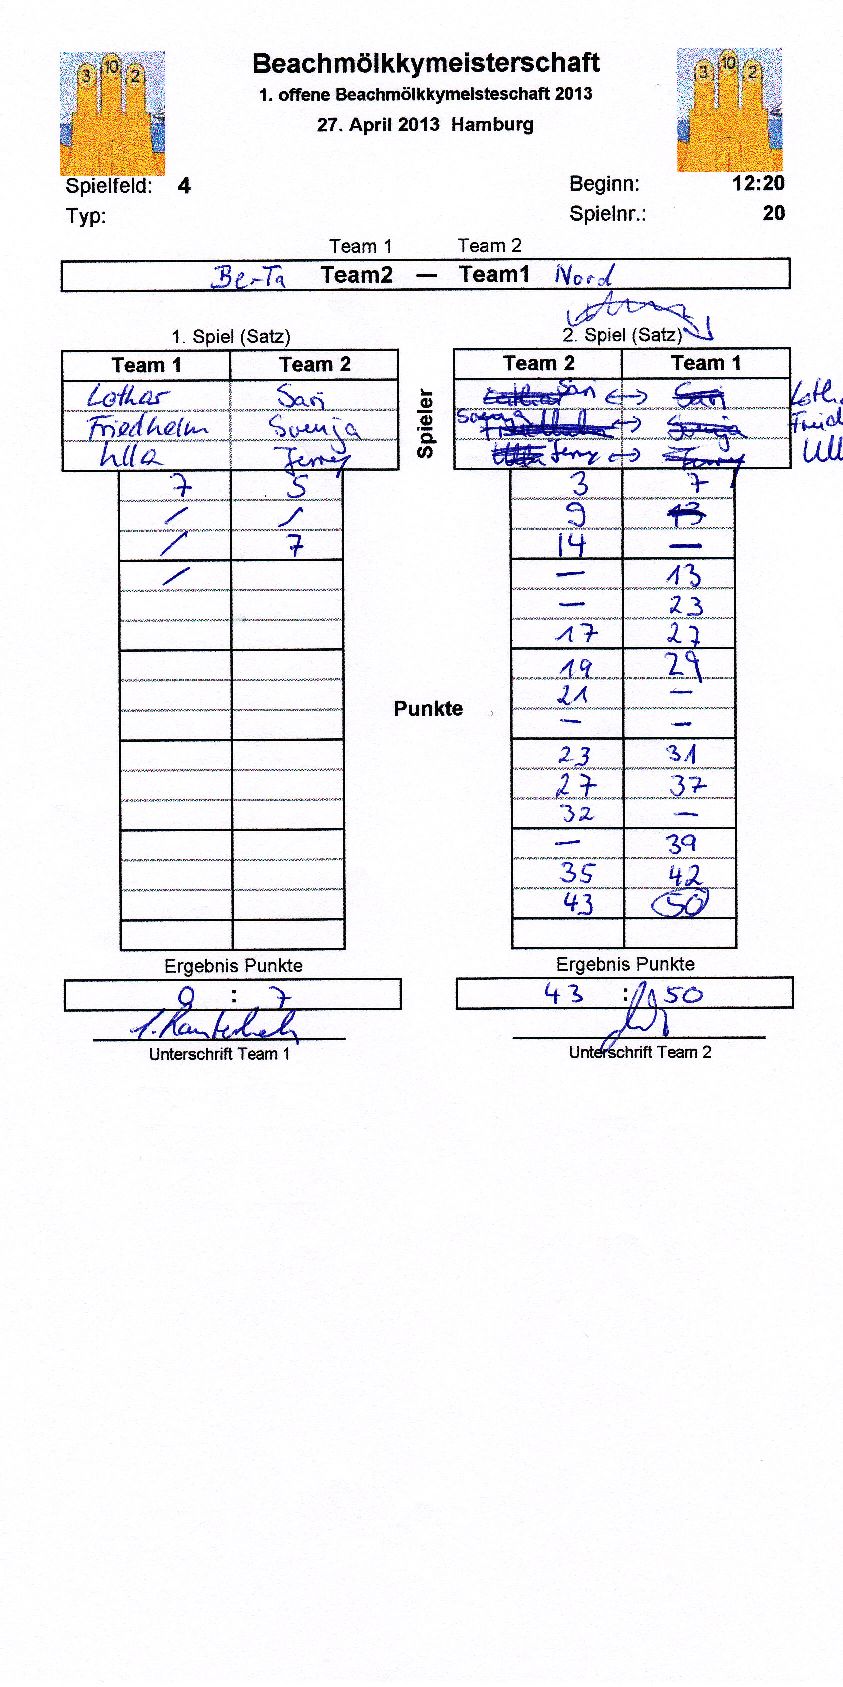 3 10 2
Beachmölkkymeisterschaft
3 10 2
1. offene Beachmölkkymeisteschaft 2013
27. April 2013 Hamburg
Spielfeld: 4 Beginn: 12:20
Typ: Spielnr.: 20
Team 1 Team 2
Be-Ta Team2 — Team1 Nord
1. Spiel (Satz) 2. Spiel (Satz)
Team 1 Team 2 Team 2 Team 1
Spieler
Lothar Sari Sari ↔ Sari Loth
Friedhelm Svenja Svenja Friedhelm ↔ Svenja Fried
Ulla Jenny Ulla Jenny ↔ Jenny Ull
7 5 3 7
/ / 9 13
/ 7 14 —
/ — 13
— 23
17 27
19 29
21 —
Punkte
— —
23 31
27 37
32 —
— 39
35 42
43 50
Ergebnis Punkte Ergebnis Punkte
: 7 43 : 50
Unterschrift Team 1 Unterschrift Team 2